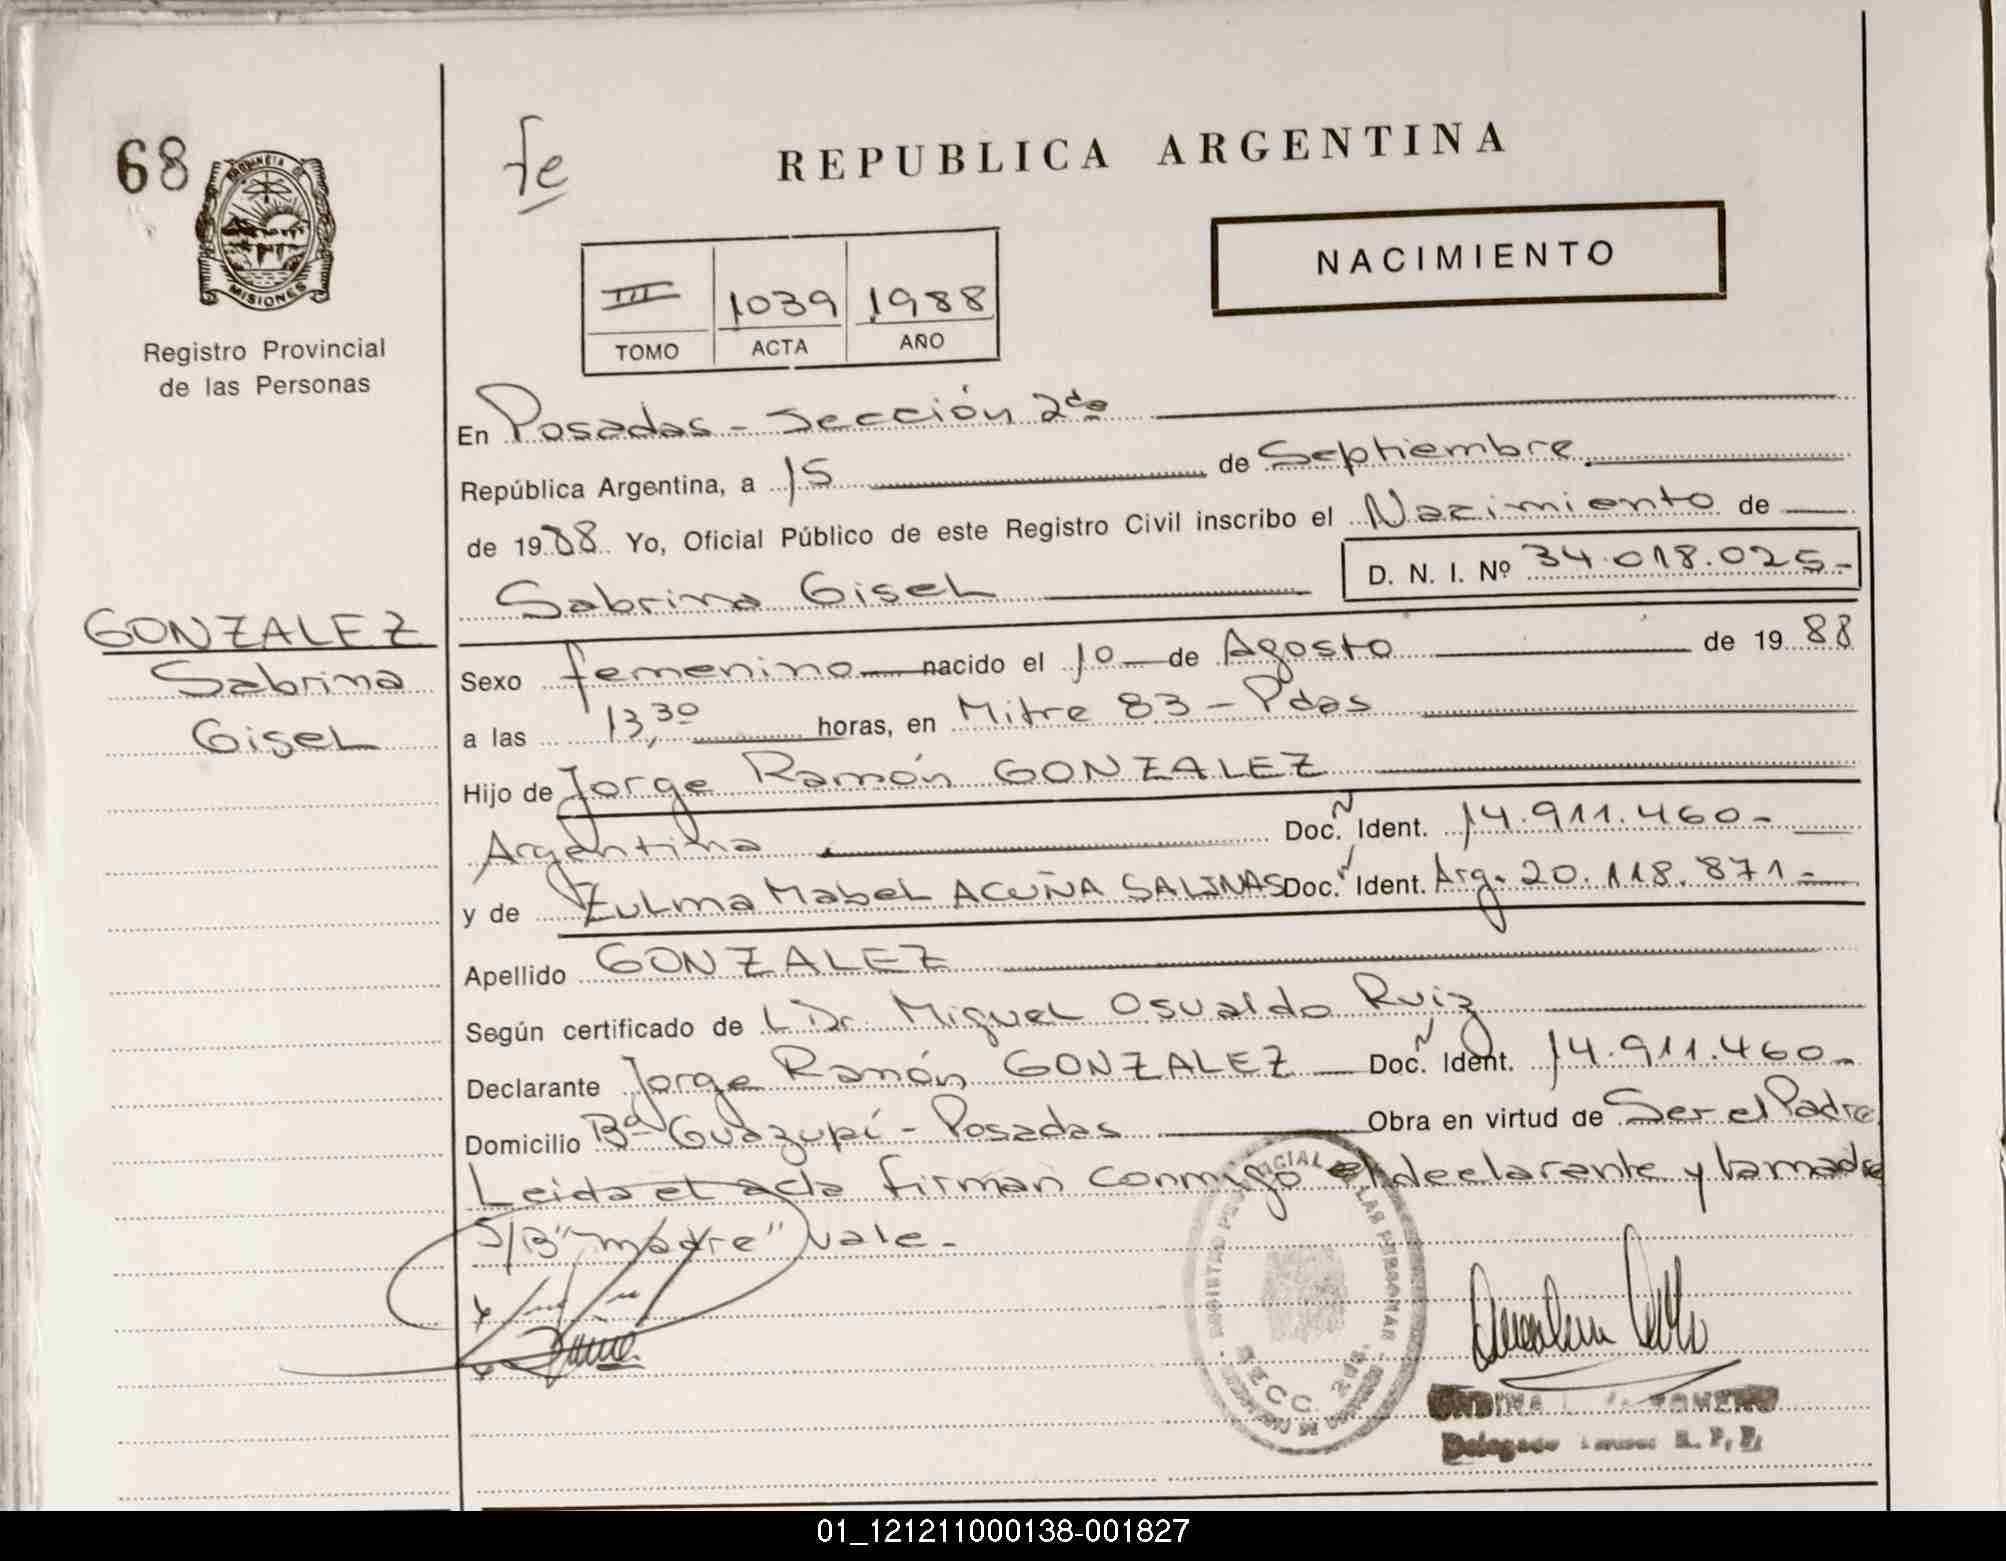 68
fe
REPUBLICA ARGENTINA
PROVINCIA
MISIONES
Registro Provincial
de las Personas
NACIMIENTO
III 1039 1988
TOMO ACTA AÑO
En Posadas - Sección 2da
República Argentina, a 15 de Septiembre
de 1988 Yo, Oficial Público de este Registro Civil inscribo el Nacimiento de
Sabrina Gisel D. N. I. Nº 34.018.025-
GONZALEZ
Sabrina
Gisel
Sexo femenino nacido el 10 de Agosto de 1988
a las 13,30 horas, en Mitre 83 - Pdas
Hijo de Jorge Ramón GONZALEZ
Argentina Doc. N Ident. 14.911.460-
y de Zulma Mabel ACUÑA SALINAS Doc. N Ident. Arg. 20.118.871-
Apellido GONZALEZ
Según certificado de L Dr. Miguel Osvaldo Ruiz
Declarante Jorge Ramón GONZALEZ Doc. N Ident. 14.911.460-
Domicilio Bº Guazupí - Posadas Obra en virtud de Ser el Padre
Leida el acta firman conmigo el declarante y la madre
S/B "madre" vale.-
SECC. 2da.
Delegado R. P. P.
01_121211000138-001827